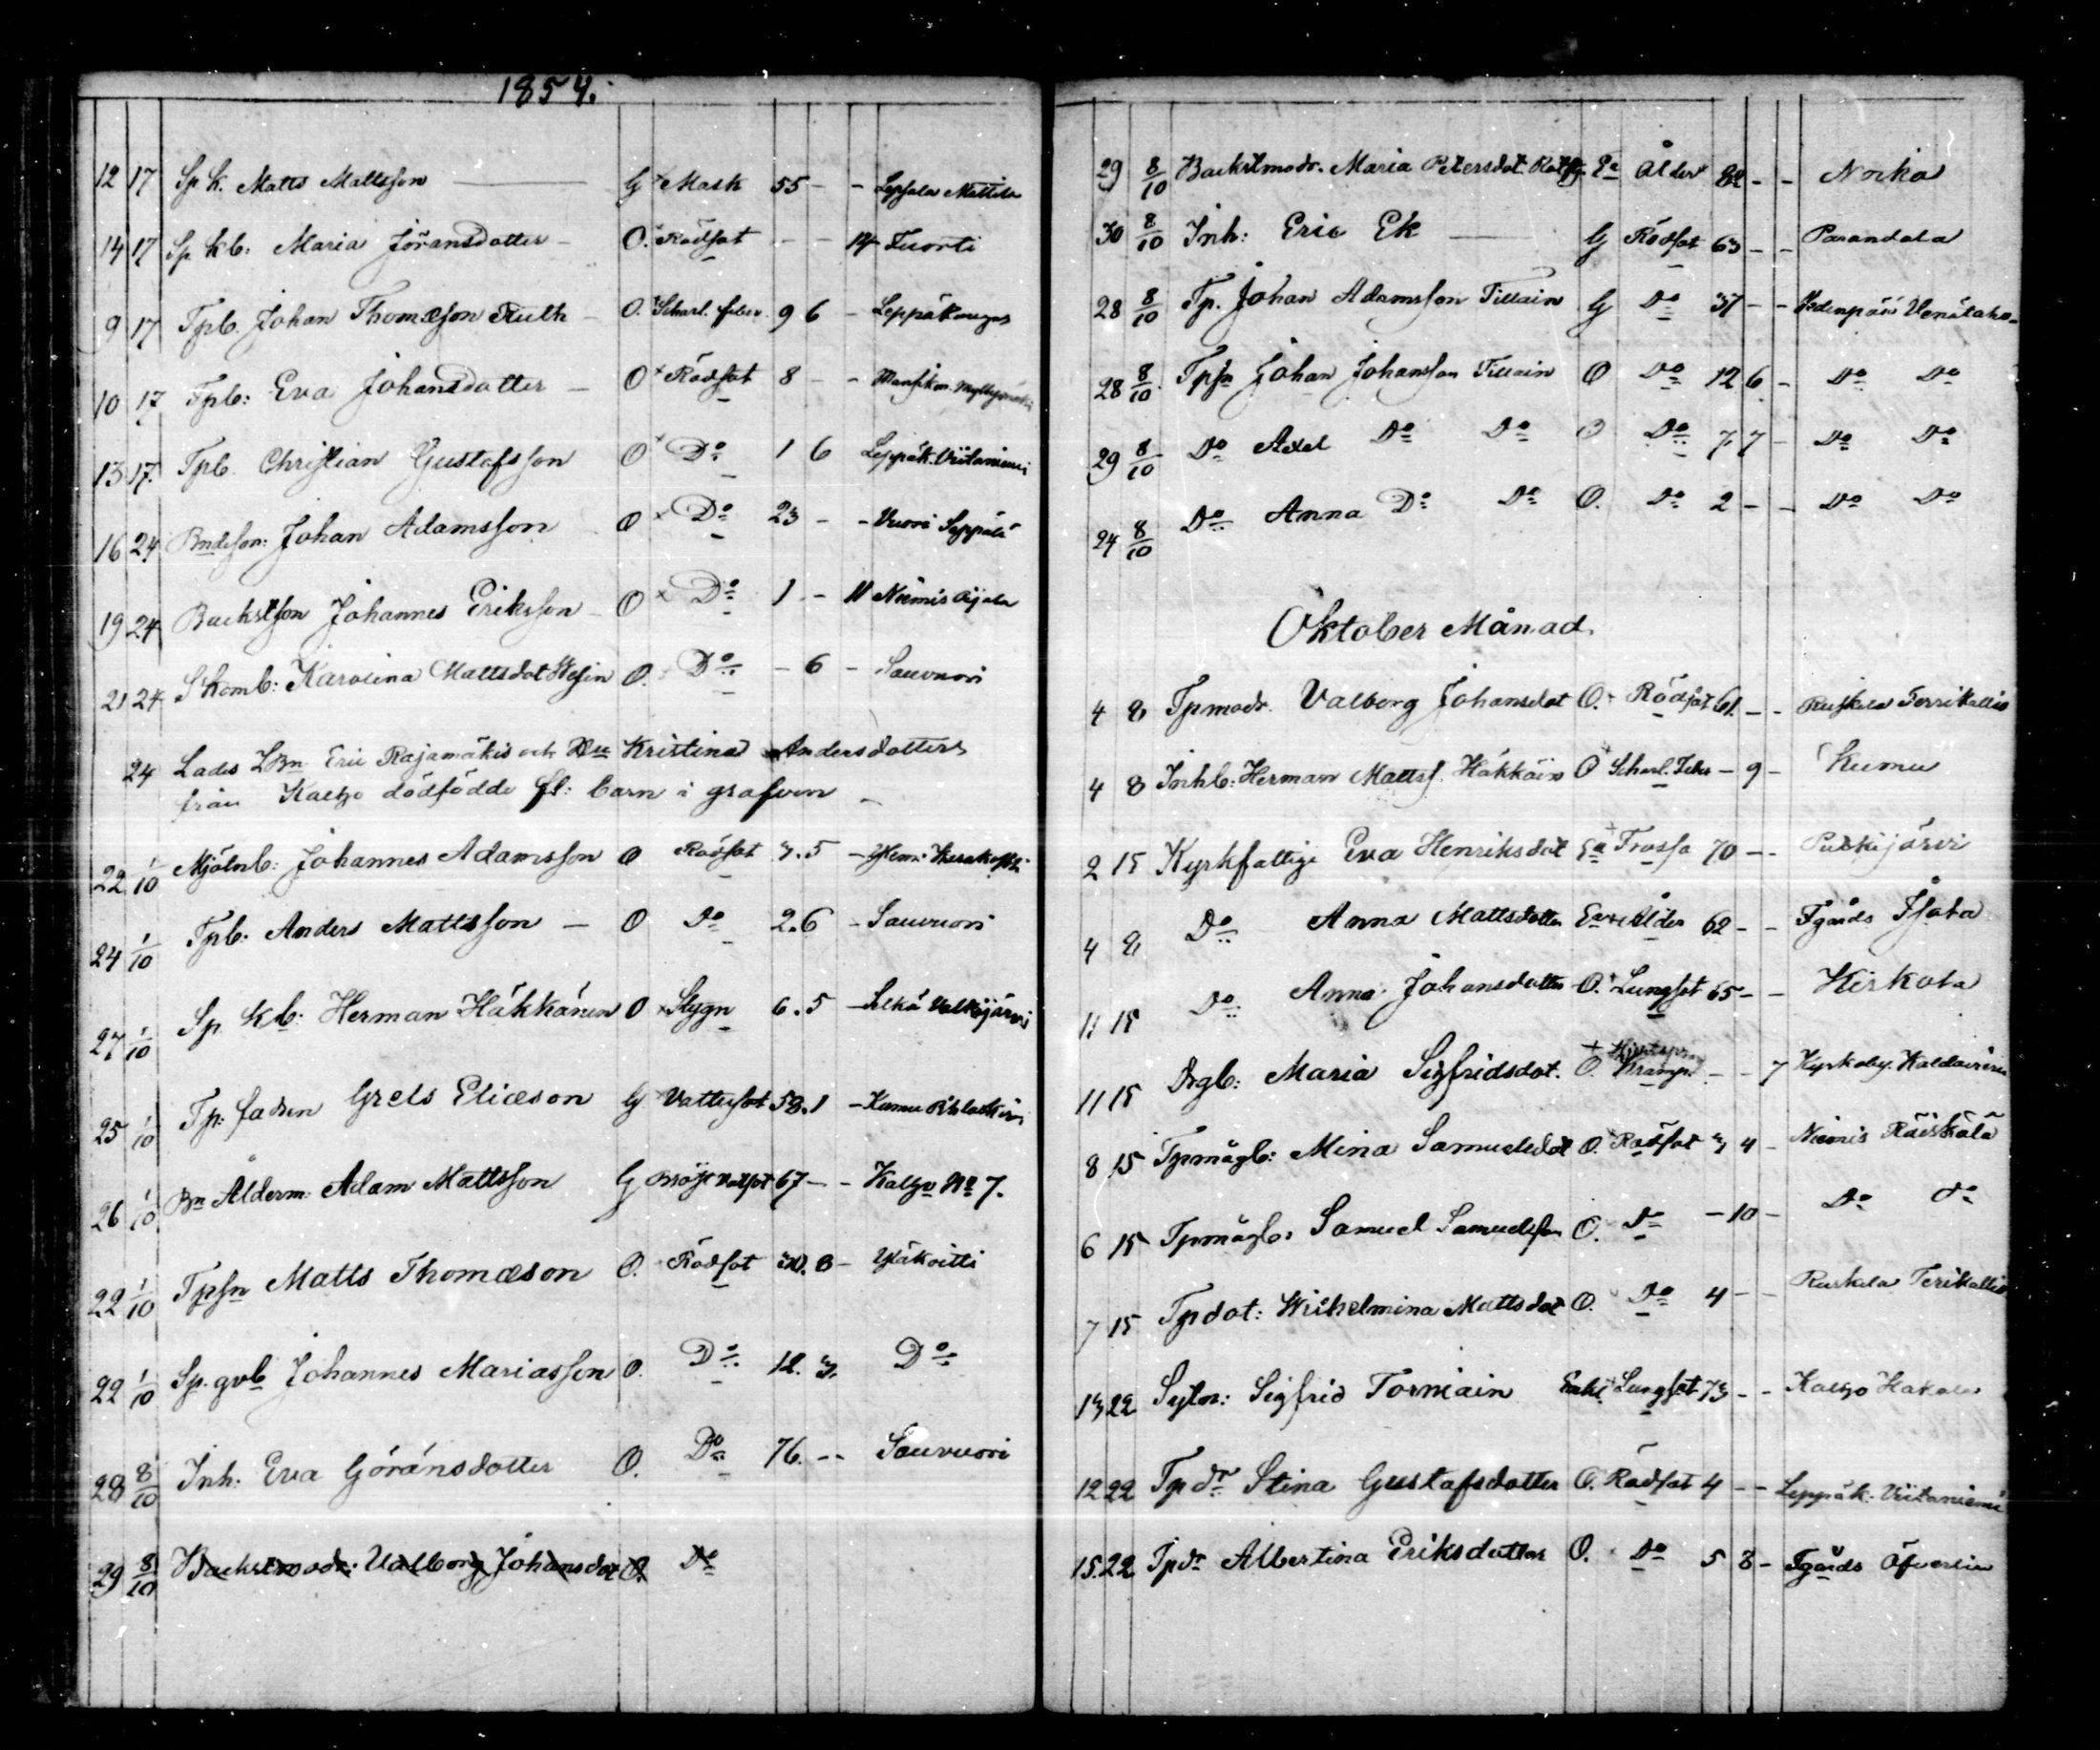 1854.
12 17 Sp k. Matts Mattsson G Mask 55 - - Lepsala Mattila
14 17 Sp. kb: Maria Göransdotter - O. Rödsot - - 14 Tuorti
9 17 Tplb. Johan Thomæson Ruth - O. Scharl. feber 9 6 - Leppäkangas
10 17 Tplb: Eva Johansdotter - O Rödsot 8 - -
13 17. Tplb. Christian Gustafsson O Do 1 6 Leppäk. Viitaniemi
16 24 Bndeson: Johan Adamsson O Do 23 - - Vuori Seppälä
19 24 Backstson Johannes Eriksson O Do 1 - 11 Niemis Äijälä
21 24 Skomb: Karolina Mattsdot O. Do - 6 - Sauvuori
24 Lades Eric Rajamäkis och Kristina Andersdotters
från Kaltzo dödfödde fl: barn i grafven -
22 1/10 Mjölnb: Johannes Adamsson O Rödsot 3. 5 -
24 1/10 Tplb. Anders Mattsson - O Do 2. 6 - Sauvuori
27 1/10 Sp. kb: Herman Häkkänen O Stygn 6. 5 - Selkä Valkijärvi
25 1/10 Tp: fadren Grels Eliæson G Vattusot 58. 1 - Kumu
26 1/10 Bn Ålderm: Adam Mattsson G Bröst 67 - - Kaltzo No 7.
22 1/10 Tpsn Matts Thomæson O. Rödsot 30. 8 - Yläkoitti
22 1/10 Sp. gvb Johannes Mariasson O. Do 12. 3. Do
28 8/10 Inh. Eva Göransdotter O. Do 76. - - Sauvuori
29 8/10 Backstmodr: Valborg Johansdot O. Do
29 8/10 Backstmodr. Maria Petersdot Ea Ålder 82 - - Norka
30 8/10 Inh: Eric Ek G Rödsot 63 - - Parandala
28 8/10 Tp. Johan Adamsson Tillain G Do 37 - - Hedenpää
28 8/10 Tpsn Johan Johansson Tillain O Do 12 6 - Do Do
29 8/10 Do Axel Do Do O Do 7 7 - Do Do
24 8/10 Do Anna Do Do O. Do 2 - - Do Do
Oktober Månad.
4 8 Tpmodr. Valborg Johansdot O. Rödsot 61. - - Ruskela Terrikallio
4 8 Inhb: Herman Mattss. Häkkäin O Scharl. Feber - 9 - Kumu
2 15 Kyrkfattige Eva Henriksdot Ea Frossa 70 - - Putkijärvi
4 8 Do Anna Mattsdotter Ea Ålder 62 - - Fgårds
11 15 Do Anna Johansdotter O. Lungsot 65 - - Kirkola
11 15 Drgb: Maria Sigfridsdot. O. Kramp - - 7 Kyrkoby.
8 15 Tpmågb: Mina Samuelsdot O. Rödsot 3 4 - Niemis Räiskälä
6 15 Tpmågb: Samuel Samuelsson O. Do - 10 - Do Do
7 15 Tpdot: Wilhelmina Mattsdot O. Do 4 - - Ruskela Terikallio
13 22 Sytn: Sigfrid Tormäin Enkl Lungsot 73 - - Kaltzo Hakala
12 22 Tpdr Stina Gustafsdotter O. Rödsot 4 - - Leppäk. Viitaniemi
15. 22 Tpdr Albertina Eriksdotter O. Do 5 8 - Fgårds